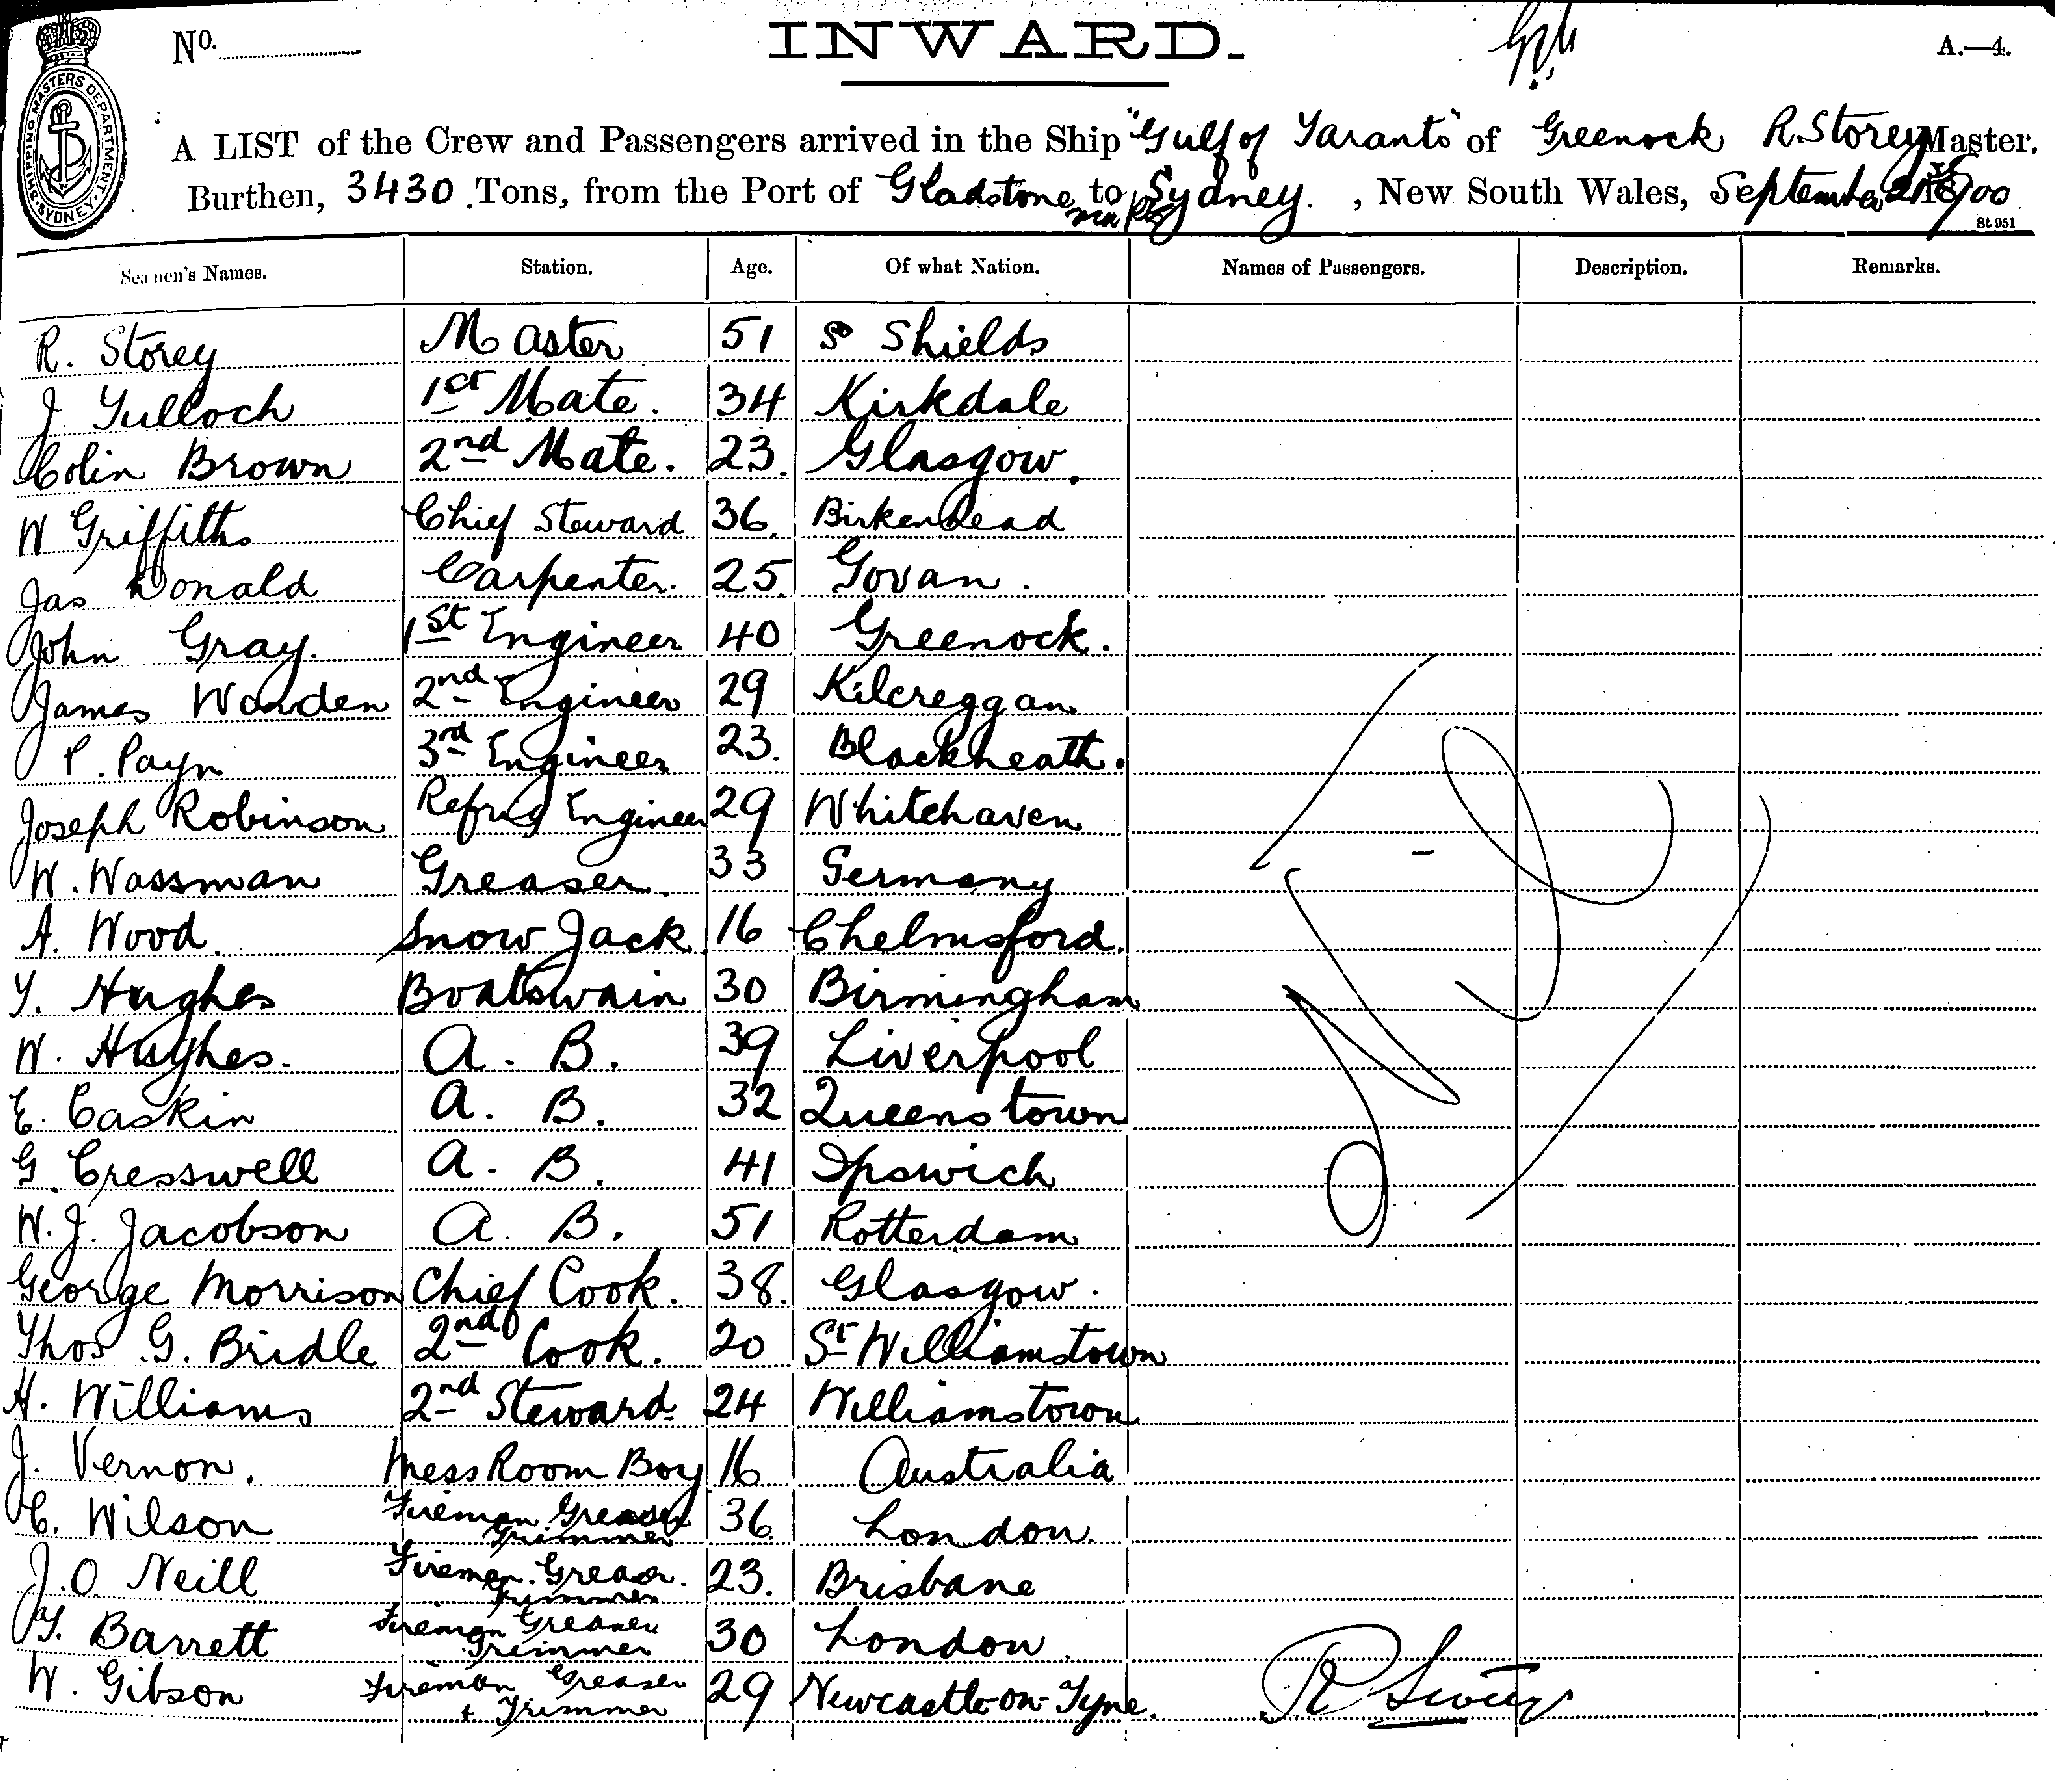 No.
INWARD.
A.—4.
SHIPPING MASTERS DEPARTMENT SYDNEY
A LIST of the Crew and Passengers arrived in the Ship "Gulf of Taranto" of Greenock R. Storey Master.
Burthen, 3430 Tons, from the Port of Gladstone to Sydney. , New South Wales, September 1900
St 951
Seamen's Names. Station. Age. Of what Nation. Names of Passengers. Description. Remarks.
R. Storey Master 51 So Shields
J Tulloch 1st Mate. 34 Kirkdale
Colin Brown 2nd Mate. 23. Glasgow.
W Griffiths Chief Steward 36. Birkenhead
Jas Donald Carpenter. 25. Govan.
John Gray. 1st Engineer 40 Greenock.
James Warden 2nd Engineer 29 Kilcreggan
P. Payn 3rd Engineer 23. Blackheath.
Joseph Robinson Refrig Engineer 29 Whitehaven
W. Wassman Greaser. 33 Germany
A. Wood. Snow Jack 16 Chelmsford.
T. Hughes Boatswain 30 Birmingham
W. Hughes. A. B. 39 Liverpool
E. Caskin A. B. 32 Queenstown
G. Cresswell A. B. 41 Ipswich
W. J. Jacobson A. B. 51 Rotterdam
George Morrison Chief Cook. 38. Glasgow.
Thos G. Bridle 2nd Cook. 20 St Williamstown
H. Williams 2nd Steward 24 Williamstown
J. Vernon. Mess Room Boy 16 Australia
C. Wilson Fireman Greaser Trimmer 36. London.
J. O Neill Fireman Greaser Trimmer 23. Brisbane
T. Barrett Fireman Greaser Trimmer 30 London
W. Gibson Fireman Greaser + Trimmer 29 Newcastle-on-Tyne.
R Storey